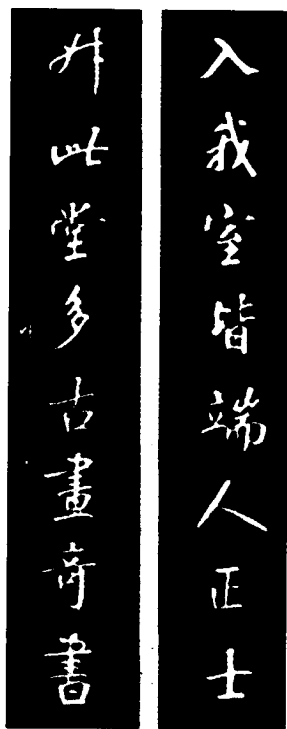 入我室皆端人正士
升此堂多古畫奇書